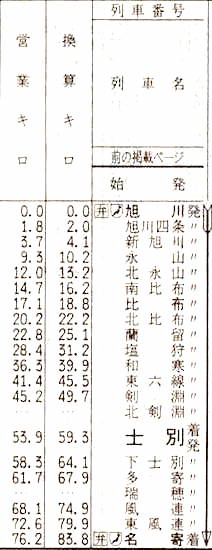 列車番号
営業キロ 換算キロ 列車名
前の掲載ページ
始発
0.0 0.0 弁 旭川発
1.8 2.0 旭川四条〃
3.7 4.1 新旭川〃
9.3 10.2 永山〃
12.0 13.2 北永山〃
14.7 16.2 南比布〃
17.1 18.8 比布〃
20.2 22.2 北比布〃
22.8 25.1 蘭留〃
28.4 31.2 塩狩〃
36.3 39.9 和寒〃
41.4 45.5 東六線〃
45.2 49.7 剣淵〃
… … 北剣淵〃
53.9 59.3 士別着発
58.3 64.1 下士別〃
61.7 67.9 多寄〃
… … 瑞穂〃
68.1 74.9 風連〃
72.6 79.9 東風連〃
76.2 83.8 弁 名寄着